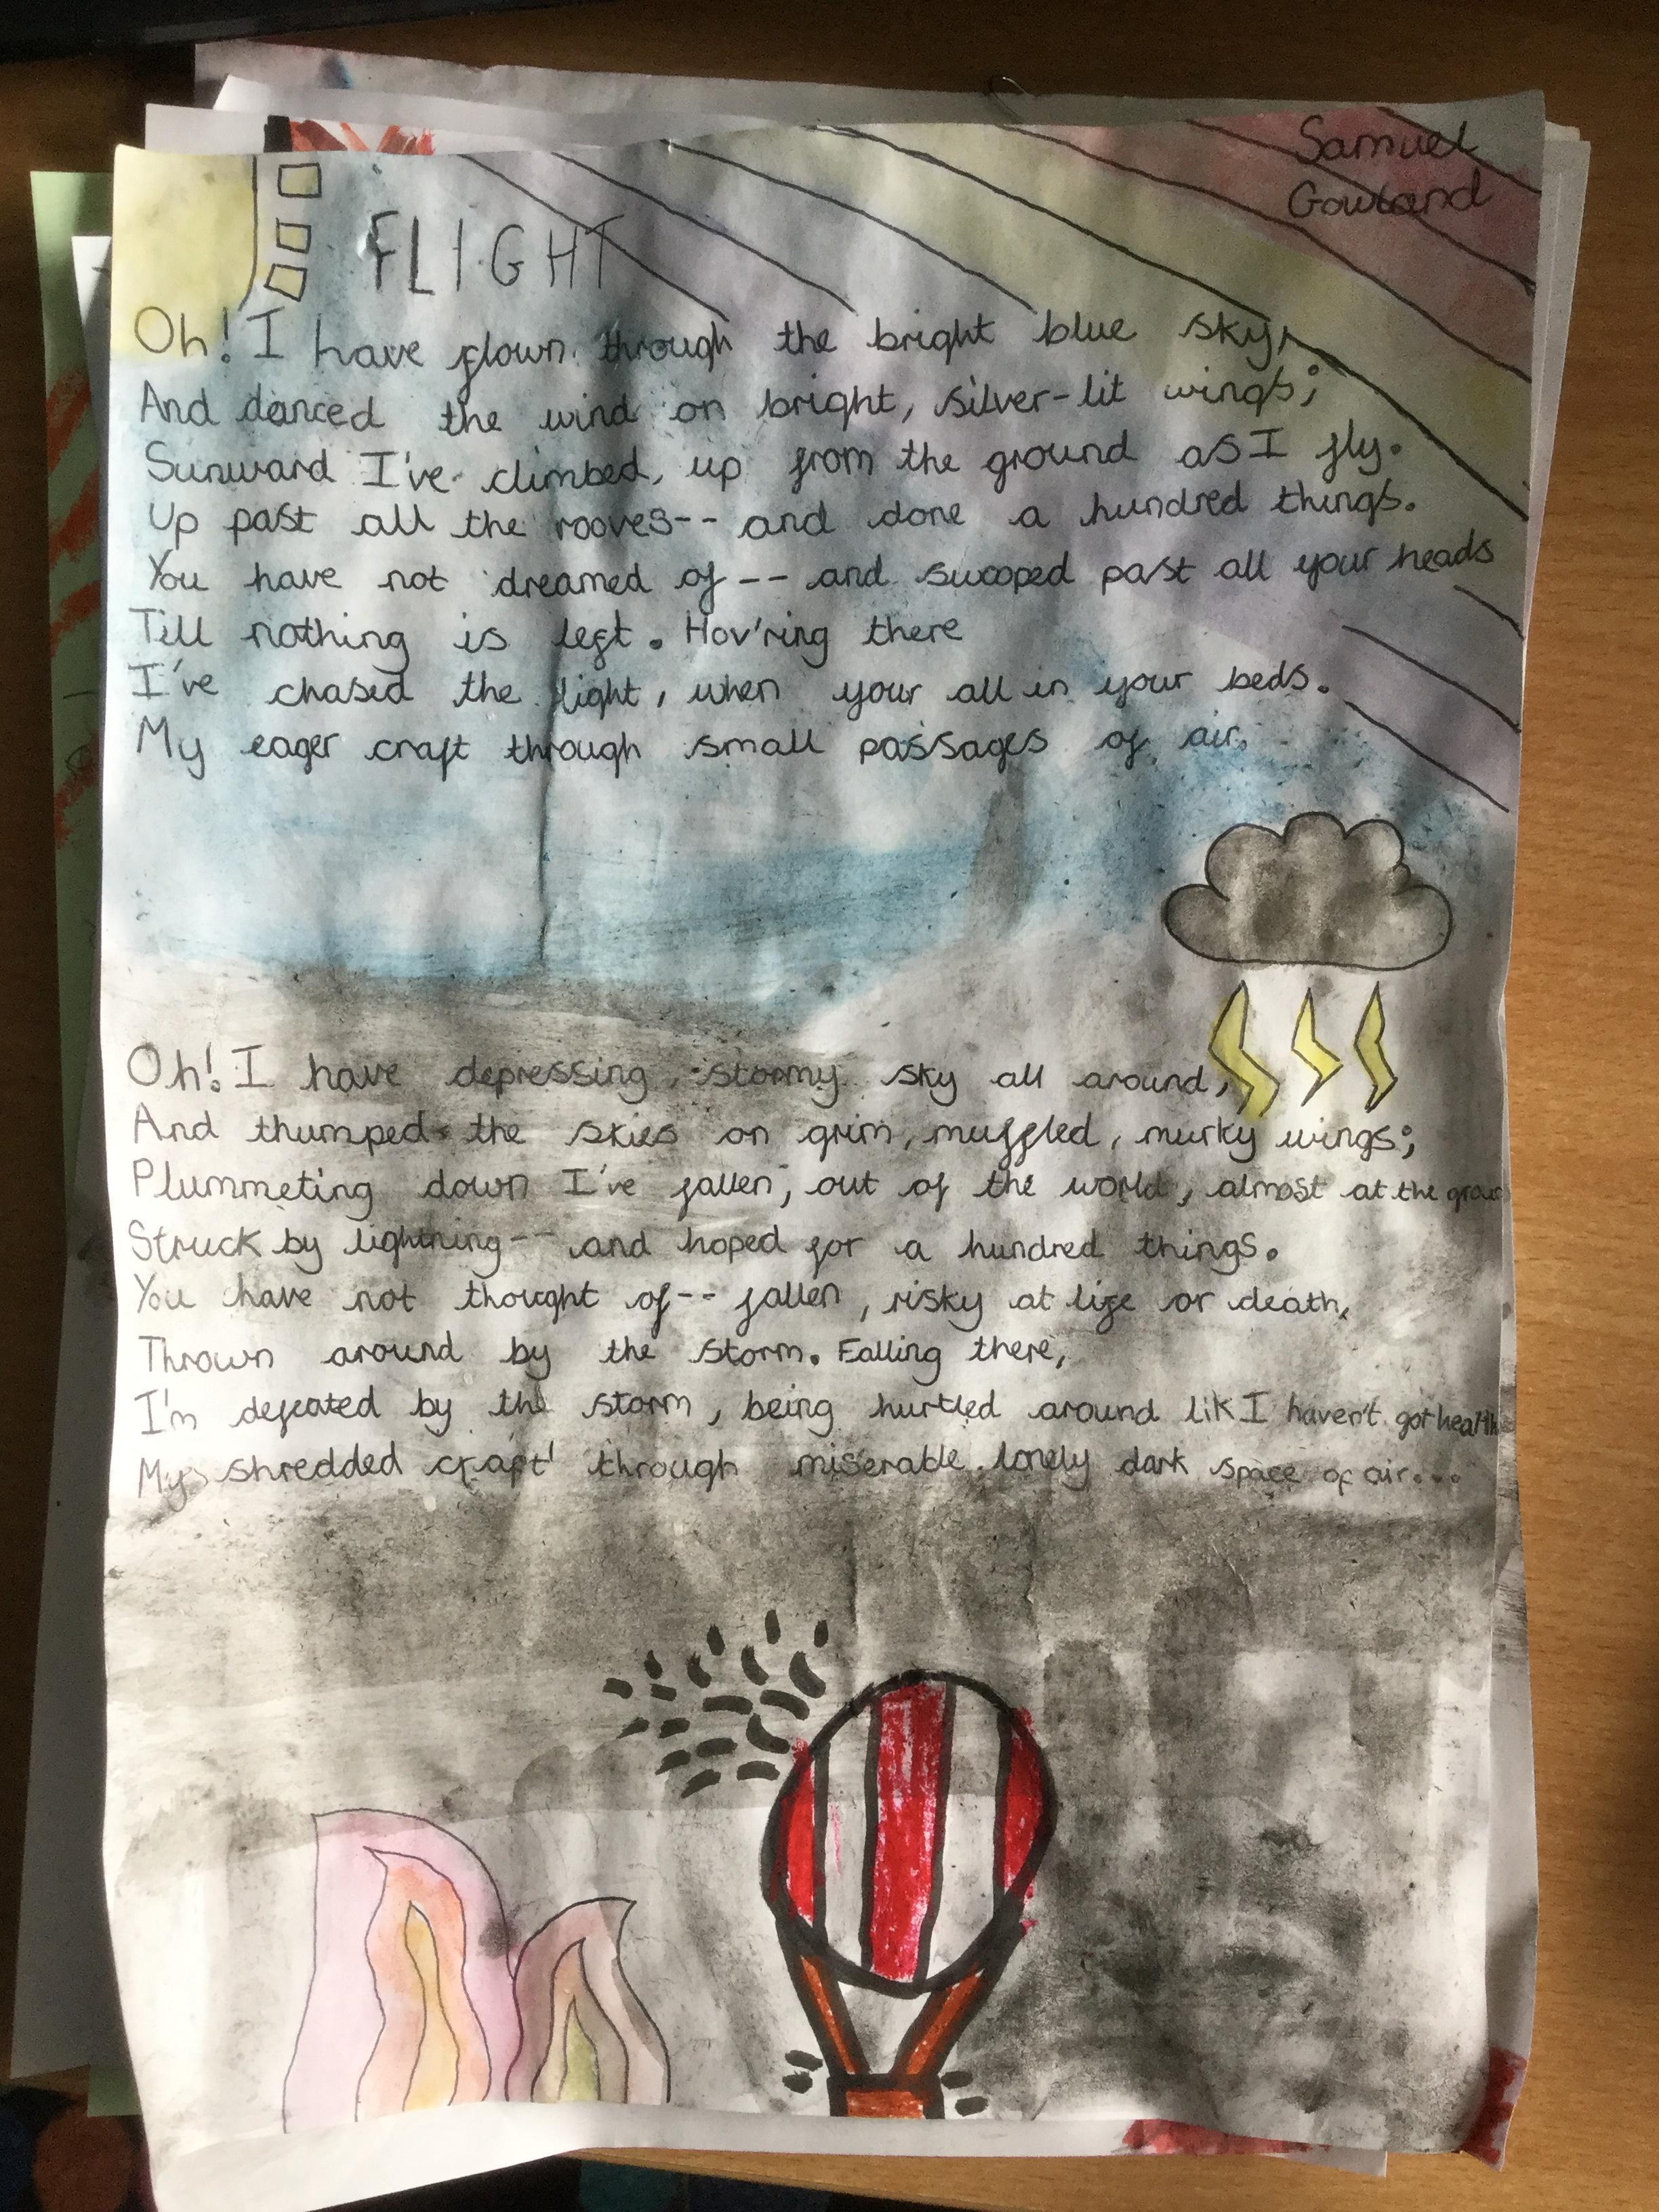 Samuel
Gowland
FLIGHT
Oh! I have flown through the bright blue sky,
And danced the wind on bright, silver-lit wings;
Sunward I've climbed, up from the ground as I fly.
Up past all the rooves-- and done a hundred things.
You have not dreamed of -- and swooped past all your heads
Till nothing is left. Hov'ring there
I've chased the flight, when your all in your beds.
My eager craft through small passages of air.
Oh! I have depressing, stormy sky all around,
And thumped the skies on grim, muffled, murky wings;
Plummeting down I've fallen, out of the world, almost at the
Struck by lightning-- and hoped for a hundred things.
You have not thought of-- fallen, risky at life or death,
Thrown around by the storm. Falling there,
I'm defeated by the storm, being hurtled around lik I haven't got health
My shredded craft through miserable, lonely dark space of air...